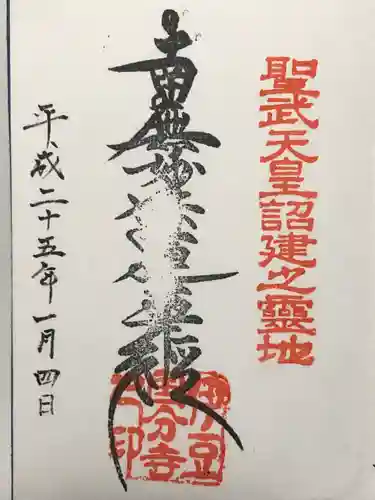 聖武天皇詔建之靈地
南無妙法蓮華経
伊豆
国分寺
之印
平成二十五年一月四日